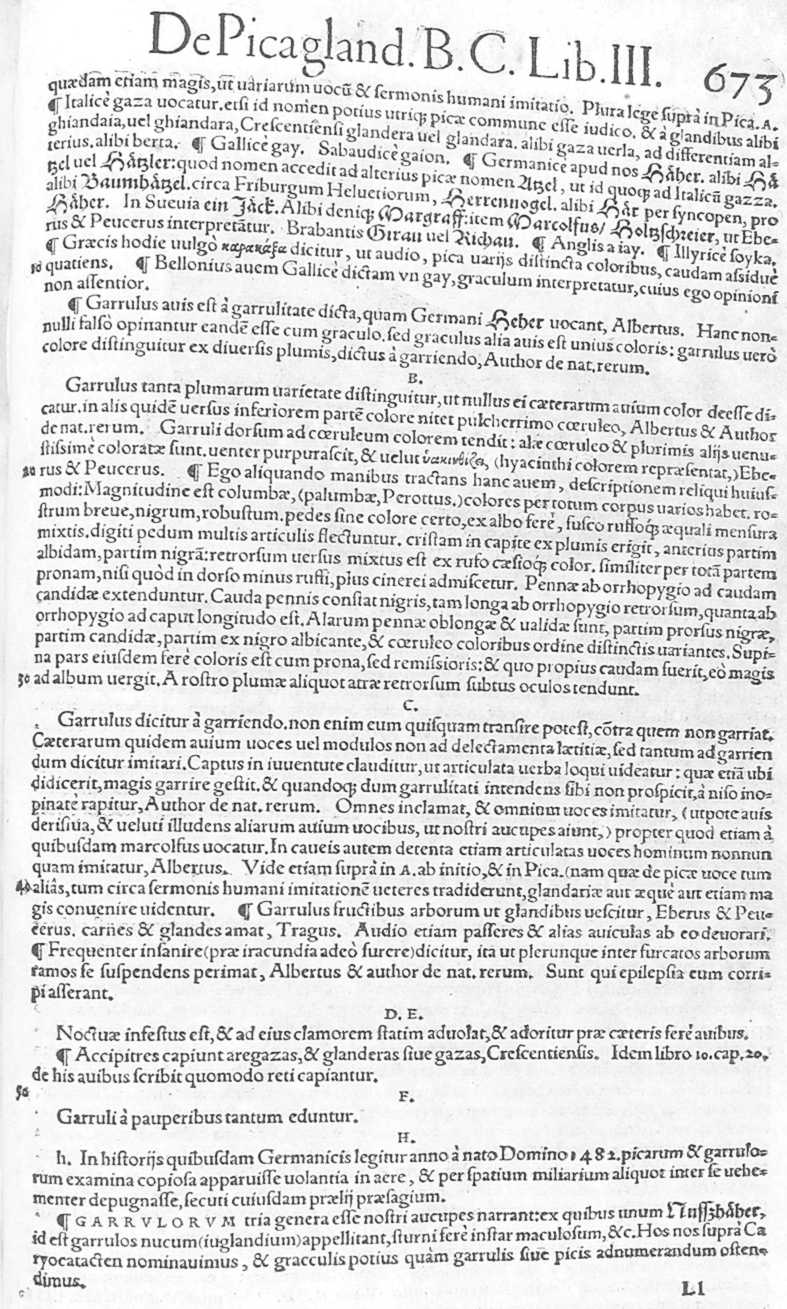 De Pica gland. B. C. Lib. III. 673
quædam etiam magis, ut uariarum uocū & sermonis humani imitatio. Plura lege suprà in Pica. A.
¶ Italicè gaza uocatur. etsi id nomen potius utriq; picæ commune esse iudico. & à glandibus alibi
ghiandaia, uel ghiandara, Crescentiensi glandera uel glandara. alibi gaza uerla, ad differentiam al-
terius. alibi berta. ¶ Gallicè gay. Sabaudicè gaion. ¶ Germanicè apud nos Häher. alibi Hä
tzel uel Hätzler: quod nomen accedit ad alterius picæ nomen Atzel, ut id quoq; ad Italicū gazza.
alibi Baumhätzel. circa Friburgum Heluetiorum, Herrenuogel. alibi Här per syncopen, pro
Häher. In Sueuia ein Jäck. Alibi deniq; Margraff: item Marcolfus/ Holtzschreier, ut Ebe-
rus & Peucerus interpretātur. Brabantis Girau uel Richau. ¶ Anglis a iay. ¶ Illyricè soyka.
¶ Græcis hodie uulgò καρακάξα dicitur, ut audio, pica uarijs distincta coloribus, caudam assiduè
10 quatiens. ¶ Bellonius auem Gallicè dictam vn gay, graculum interpretatur, cuius ego opinioni
non assentior.
¶ Garrulus auis est à garrulitate dicta, quam Germani Heher uocant, Albertus. Hanc non-
nulli falsò opinantur eandē esse cum graculo. sed graculus alia auis est unius coloris: garrulus uerò
colore distinguitur ex diuersis plumis, dictus à garriendo, Author de nat. rerum.
B.
Garrulus tanta plumarum uarietate distinguitur, ut nullus ei cæterarum auium color deesse di-
catur. in alis quidē uersus inferiorem partē colore nitet pulcherrimo cœruleo, Albertus & Author
de nat. rerum. Garruli dorsum ad cœruleum colorem tendit: alæ cœruleo & plurimis alijs uenu-
stissimè coloratæ sunt. uenter purpurascit, & uelut ὑακινθίζει, (hyacinthi colorem repræsentat,) Ebe-
20 rus & Peucerus. ¶ Ego aliquando manibus tractans hanc auem, descriptionem reliqui huius-
modi: Magnitudine est columbæ, (palumbæ, Perottus.) colores per totum corpus uarios habet. ro-
strum breue, nigrum, robustum. pedes sine colore certo, ex albo ferè, fusco ruffoq; æquali mensura
mixtis. digiti pedum multis articulis flectuntur. cristam in capite ex plumis erigit, anterius partim
albidam, partim nigrā: retrorsum uersus mixtus est ex rufo cæsioq; color. similiter per totā partem
pronam, nisi quòd in dorso minus ruffi, plus cinerei admiscetur. Pennæ ab orrhopygio ad caudam
candidæ extenduntur. Cauda pennis constat nigris, tam longa ab orrhopygio retrorsum, quanta ab
orrhopygio ad caput longitudo est. Alarum pennæ oblongæ & ualidæ sunt, partim prorsus nigræ,
partim candidæ, partim ex nigro albicante, & cœruleo coloribus ordine distinctis uariantes. Supi-
na pars eiusdem ferè coloris est cum prona, sed remissioris: & quo propius caudam fuerit, eò magis
30 ad album uergit. A rostro plumæ aliquot atræ retrorsum subtus oculos tendunt.
C.
Garrulus dicitur à garriendo. non enim eum quisquam transire potest, cōtra quem non garriat.
Cæterarum quidem auium uoces uel modulos non ad delectamenta lætitiæ, sed tantum ad garrien
dum dicitur imitari. Captus in iuuentute clauditur, ut articulata uerba loqui uideatur: quæ etiā ubi
didicerit, magis garrire gestit. & quandoq; dum garrulitati intendens sibi non prospicit, à niso ino-
pinatè rapitur, Author de nat. rerum. Omnes inclamat, & omnium uoces imitatur, (utpote auis
derisiua, & ueluti illudens aliarum auium uocibus, ut nostri aucupes aiunt,) propter quod etiam à
quibusdam marcolfus uocatur. In caueis autem detenta etiam articulatas uoces hominum nonnun
quam imitatur, Albertus. Vide etiam suprà in A. ab initio, & in Pica. (nam quæ de picæ uoce tum
40 aliàs, tum circa sermonis humani imitationē ueteres tradiderunt, glandariæ aut æquè aut etiam ma
gis conuenire uidentur. ¶ Garrulus fructibus arborum ut glandibus uescitur, Eberus & Peu-
cerus. carnes & glandes amat, Tragus. Audio etiam passeres & alias auiculas ab eo deuorari.
¶ Frequenter insanire (præ iracundia adeò furere) dicitur, ita ut plerunque inter furcatos arborum
ramos se suspendens perimat, Albertus & author de nat. rerum. Sunt qui epilepsia eum corri-
pi asserant.
D. E.
Noctuæ infestus est, & ad eius clamorem statim aduolat, & adoritur præ cæteris ferè auibus.
¶ Accipitres capiunt aregazas, & glanderas siue gazas, Crescentiensis. Idem libro 10. cap. 20.
de his auibus scribit quomodo reti capiantur.
50 F.
Garruli à pauperibus tantum eduntur.
H.
h. In historijs quibusdam Germanicis legitur anno à nato Domino 1482. picarum & garrulo-
rum examina copiosa apparuisse uolantia in aere, & per spatium miliarium aliquot inter se uehe-
menter depugnasse, secuti cuiusdam prælij præsagium.
¶ GARRVLORVM tria genera esse nostri aucupes narrant: ex quibus unum Nussʒhäher,
id est garrulos nucum (iuglandium) appellitant, sturni ferè instar maculosum, &c. Hos nos suprà Ca
ryocatacten nominauimus, & gracculis potius quàm garrulis siue picis adnumerandum osten-
dimus.
Ll